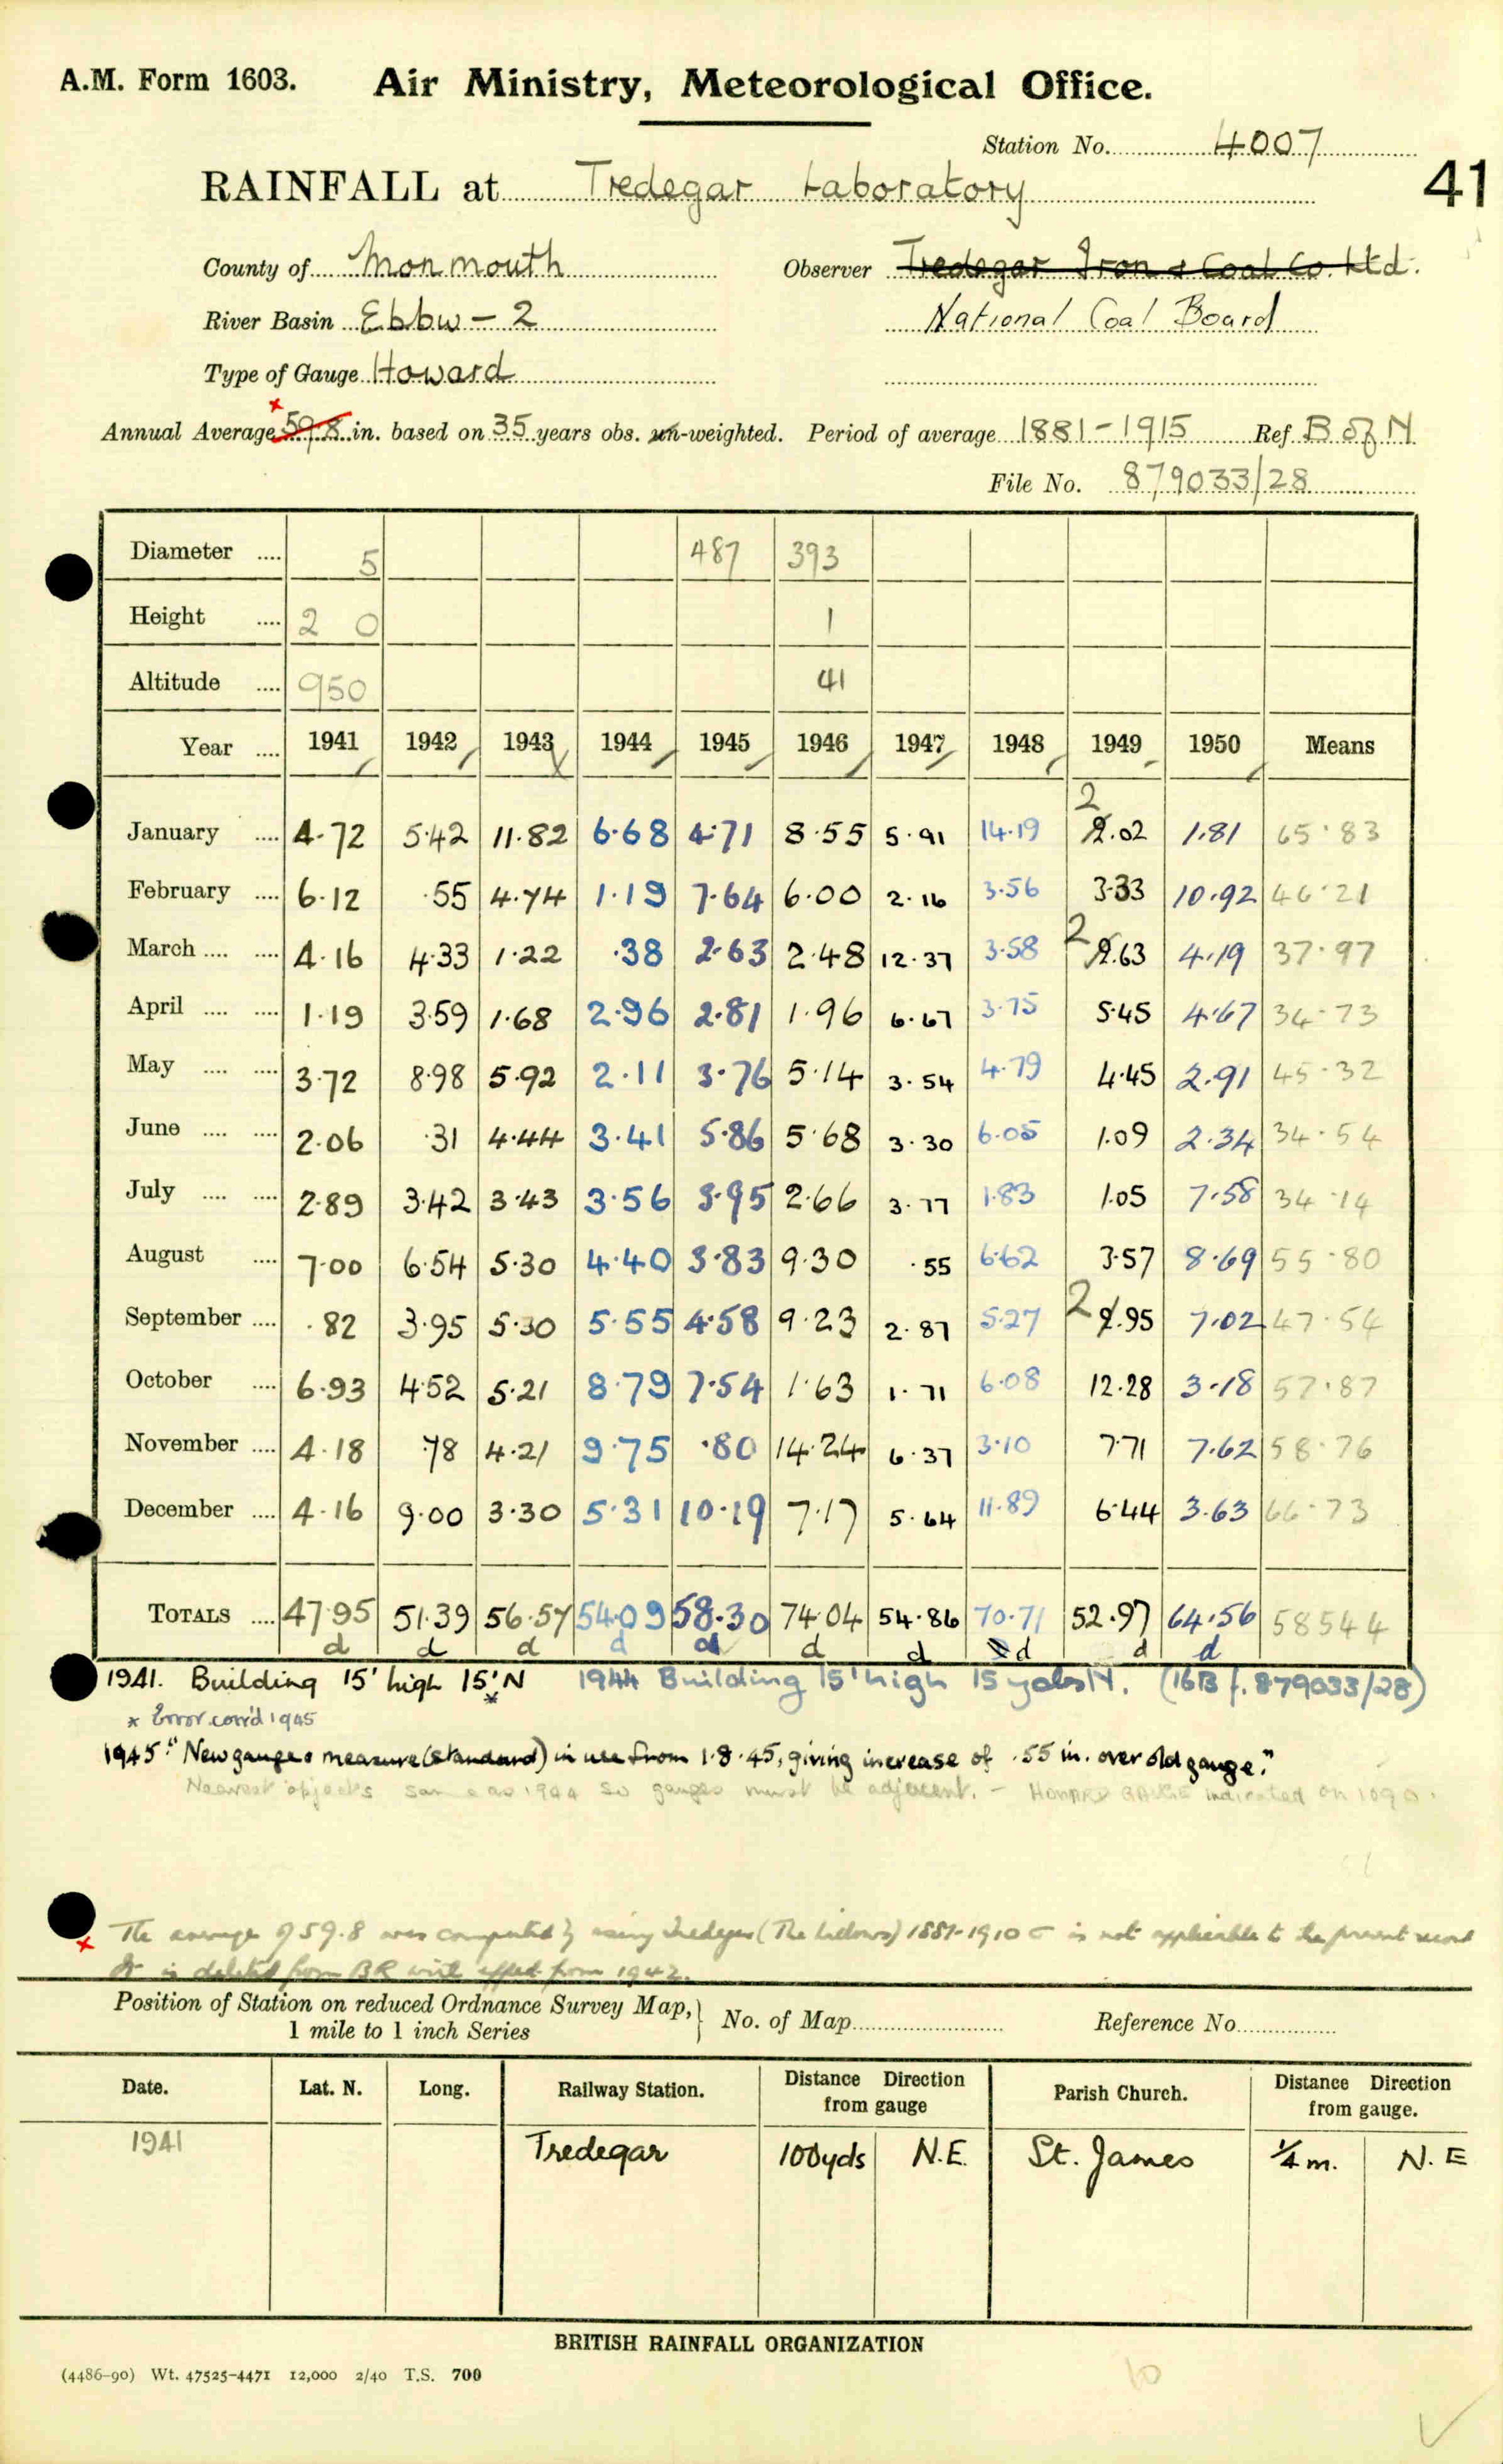 A.M. Form 1603. Air Ministry, Meteorological Office.
Station No. 4007
41
RAINFALL at Tredegar Laboratory
County of Monmouth Observer Tredegar Iron & Coal Co. Ltd.
River Basin Ebbw - 2 National Coal Board
Type of Gauge Howard
× Annual Average 59.8 in. based on 35 years obs. un-weighted. Period of average 1881-1915 Ref B of N
File No. 879033/28
Diameter .... 5 487 393
Height .... 2 0 1
Altitude .... 950 41
Year .... 1941 1942 1943 1944 1945 1946 1947 1948 1949 1950 Means
January .... 4.72 5.42 11.82 6.68 4.71 8.55 5.91 14.19 2 2.02 1.81 65.83
February .... 6.12 .55 4.74 1.19 7.64 6.00 2.16 3.56 3.33 10.92 46.21
March .... .... 4.16 4.33 1.22 .38 2.63 2.48 12.37 3.58 2 2.63 4.19 37.97
April .... .... 1.19 3.59 1.68 2.96 2.81 1.96 6.67 3.75 5.45 4.67 34.73
May .... .... 3.72 8.98 5.92 2.11 3.76 5.14 3.54 4.79 4.45 2.91 45.32
June .... .... 2.06 .31 4.44 3.41 5.86 5.68 3.30 6.05 1.09 2.34 34.54
July .... .... 2.89 3.42 3.43 3.56 3.95 2.66 3.77 1.83 1.05 7.58 34.14
August .... 7.00 6.54 5.30 4.40 3.83 9.30 .55 6.62 3.57 8.69 55.80
September .... .82 3.95 5.30 5.55 4.58 9.23 2.87 5.27 2 2.95 7.02 47.54
October .... 6.93 4.52 5.21 8.79 7.54 1.63 1.71 6.08 12.28 3.18 57.87
November .... 4.18 .78 4.21 9.75 .80 14.24 6.37 3.10 7.71 7.62 58.76
December .... 4.16 9.00 3.30 5.31 10.19 7.17 5.64 11.89 6.44 3.63 66.73
TOTALS .... 47.95 51.39 56.57 54.09 58.30 74.04 54.86 70.71 52.97 64.56 58544
d d d d d d d d d d
1941. Building 15' high 15' N 1944 Building 15' high 15 yds N. (16B f. 879033/28)
* Error corr'd 1945
1945 "New gauge & measure (standard) in use from 1.8.45, giving increase of .55 in. over old gauge."
Nearest objects same as 1944 so gauges must be adjacent. - HOWARD GAUGE indicated on 1090.
× The average of 59.8 was computed by using Tredegar (The ) 1881-1910 & is not applicable to the present record
It is deleted from BR with effect from 1942.
Position of Station on reduced Ordnance Survey Map, } No. of Map Reference No.
1 mile to 1 inch Series
Date. Lat. N. Long. Railway Station. Distance Direction from gauge Parish Church. Distance Direction from gauge.
1941 Tredegar 100yds N.E. St. James ¼ m. N. E
BRITISH RAINFALL ORGANIZATION
(4486-90) Wt. 47525-4471 12,000 2/40 T.S. 700
10